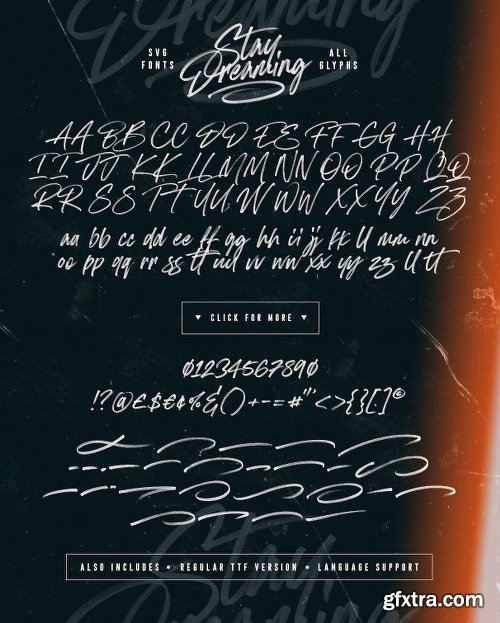 SVG FONTS
Stay Dreaming
ALL GLYPHS
AA BB CC DD EE FF GG HH
II JJ KK LL MM NN OO PP QQ
RR SS TT UU VV WW XX YY ZZ
aa bb cc dd ee ff gg hh ii jj kk ll mm nn
oo pp qq rr ss tt uu vv ww xx yy zz ll tt
▼ CLICK FOR MORE ▼
01234567890
!?@£$€¢%&()+-=#"'<>{}[]©
ALSO INCLUDES • REGULAR TTF VERSION • LANGUAGE SUPPORT
Stay Dreaming
gfxtra.com